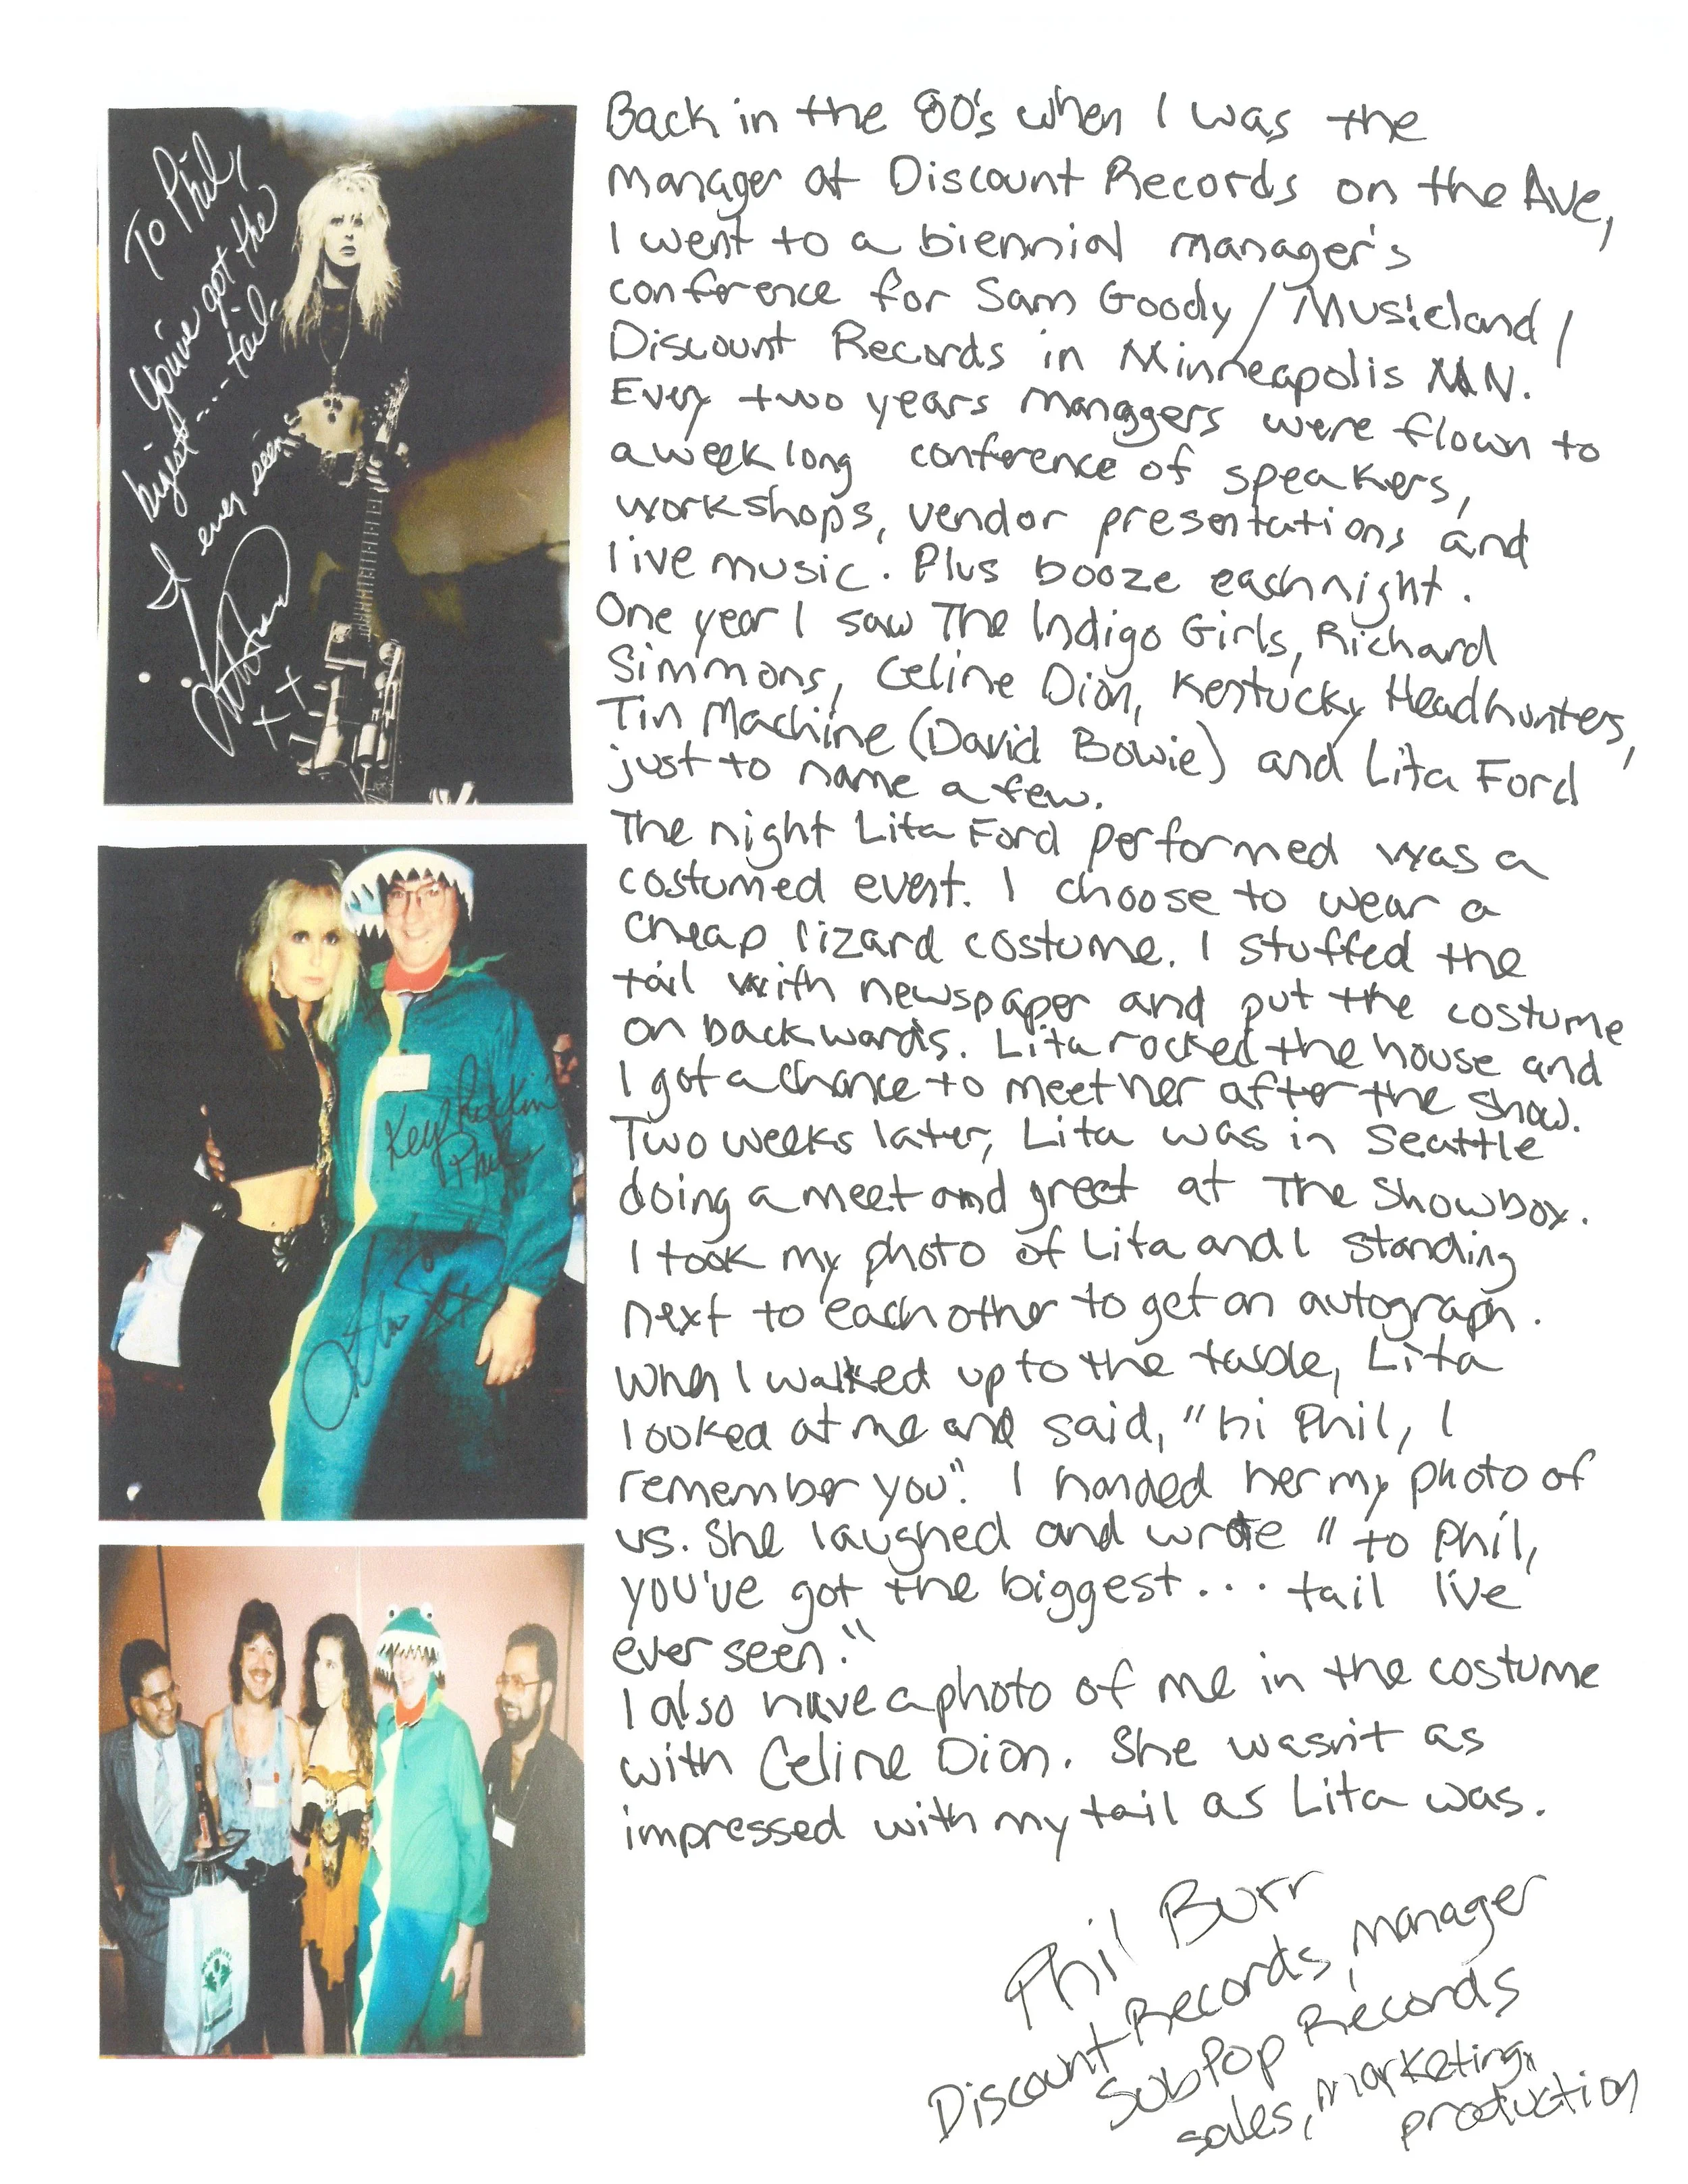 To Phil,
You've got the
bigest.... tail
I ever seen
xx
Keep Rockin
Phil
Lita Ford
xx
Back in the 80's when I was the
manager at Discount Records on the Ave,
I went to a biennial manager's
conference for Sam Goody/Musicland/
Discount Records in Minneapolis MN.
Every two years managers were flown to
a week long conference of speakers,
workshops, vendor presentations and
live music. Plus booze each night.
One year I saw The Indigo Girls, Richard
Simmons, Celine Dion, Kentucky Headhunters,
Tin Machine (David Bowie) and Lita Ford
just to name a few.
The night Lita Ford performed was a
costumed event. I choose to wear a
cheap lizard costume. I stuffed the
tail with newspaper and put the costume
on backwards. Lita rocked the house and
I got a chance to meet her after the show.
Two weeks later, Lita was in Seattle
doing a meet and greet at The Showbox.
I took my photo of Lita and I standing
next to each other to get an autograph.
When I walked up to the table, Lita
looked at me and said, "hi Phil, I
remember you". I handed her my photo of
us. She laughed and wrote "to Phil,
you've got the biggest... tail I've
ever seen."
I also have a photo of me in the costume
with Celine Dion. She wasn't as
impressed with my tail as Lita was.
Phil Burr
Discount Records, manager
SubPop Records
sales, marketing,
production